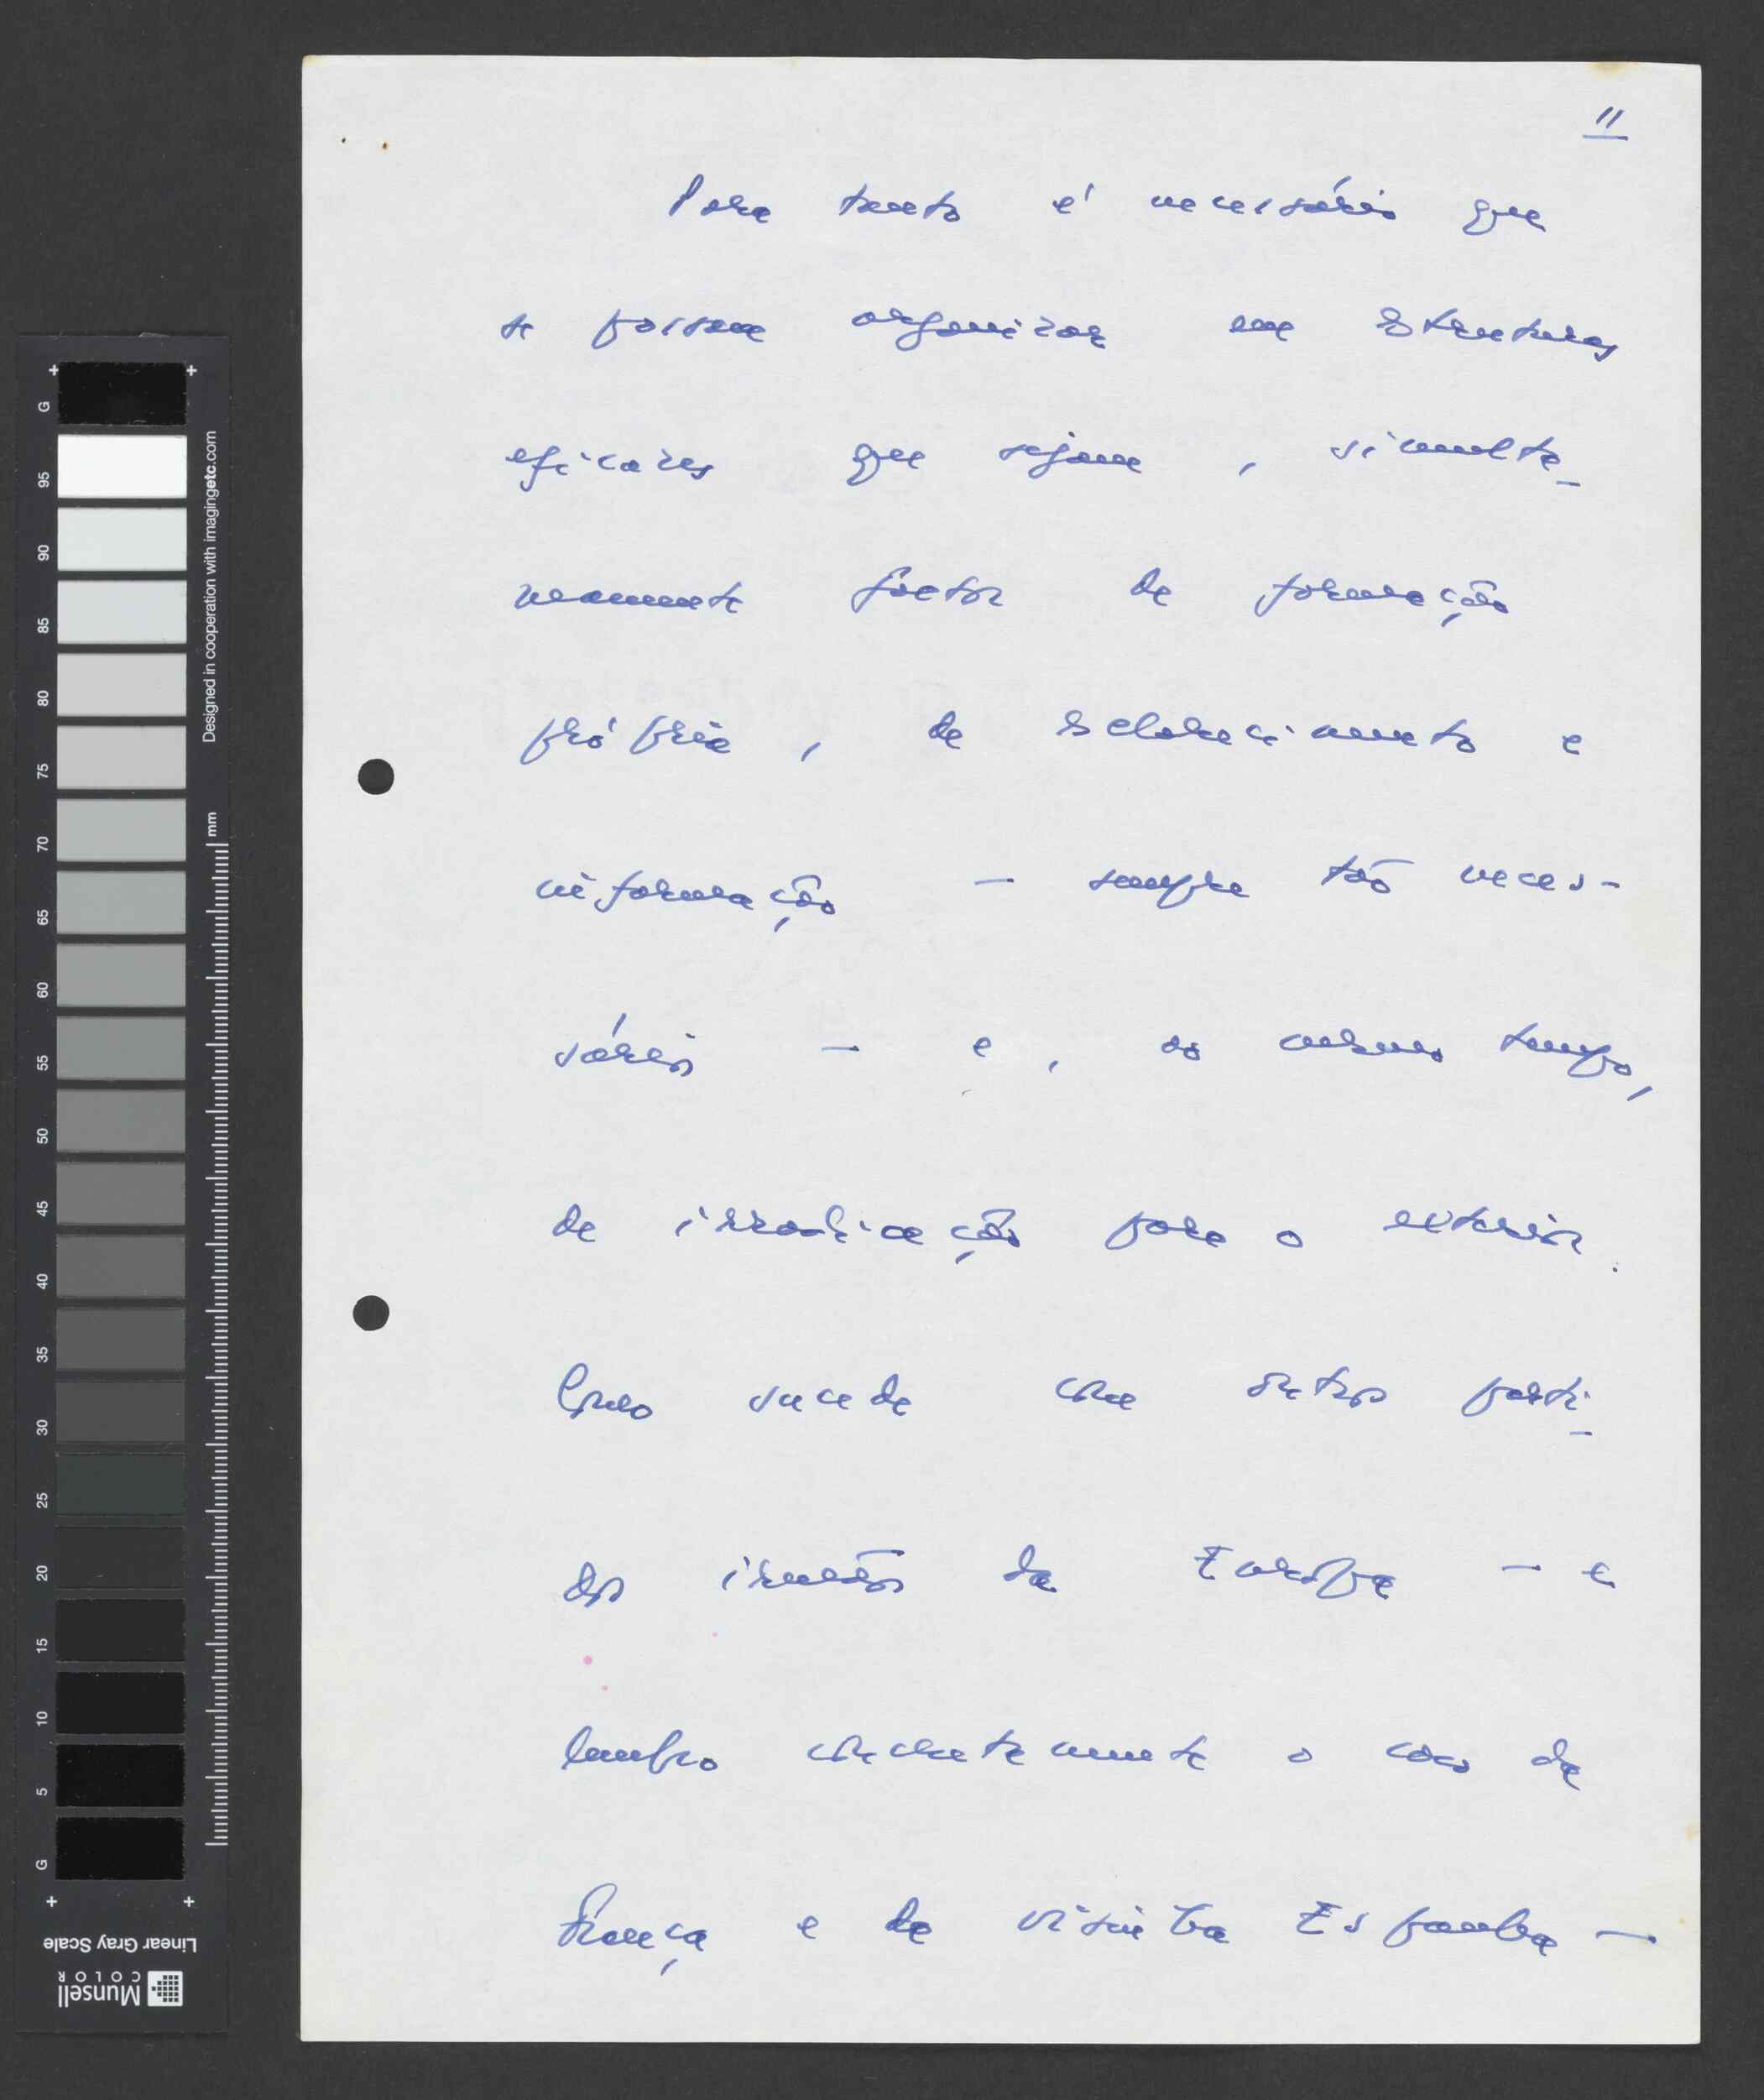 11
Para tanto é necessário que
se possam organizar em estruturas
eficazes que sejam, simultâ-
neamente factor de formação
própria, de esclarecimento e
informação — sempre tão neces-
sários — e, ao mesmo tempo,
de irradiação para o exterior.
Como sucede com outros parti-
dos irmãos da Europa — e
lembro concretamente o caso da
França e da visinha Espanha —
G
95
90
85
80
75
70
65
60
55
50
45
40
35
30
25
20
15
10
5
G
Designed in cooperation with imagingetc.com
mm
Linear Gray Scale
Munsell
COLOR